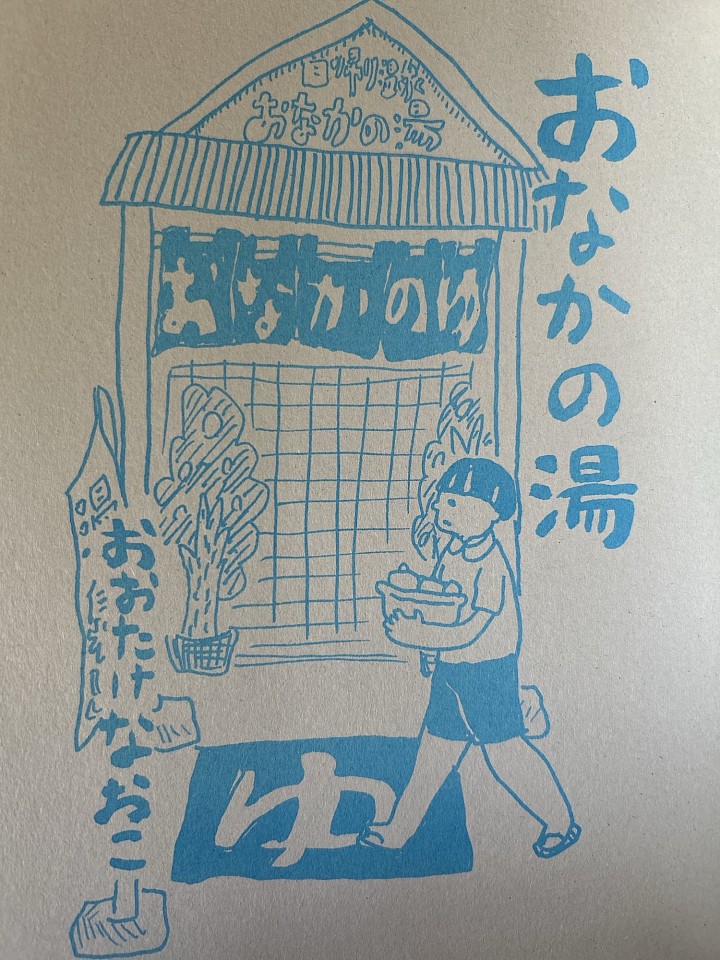 おなかの湯
日帰り温泉
おなかの湯
おなかのゆ
湯
おおたけなおこ
ゆ